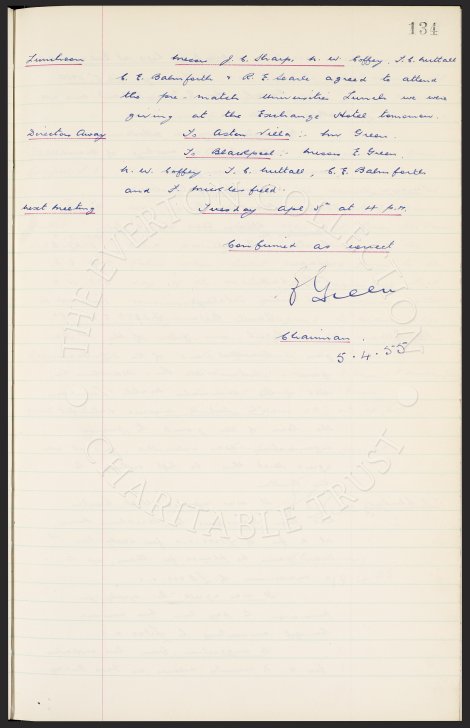 134
Luncheon Messrs J. C. Sharp, N. W. Coffey, T. C. Nuttall
C. E. Balmforth & R. E. Searle agreed to attend
the pre-match Universities Lunch we were
giving at the Exchange Hotel tomorrow.
Directors Away To Aston Villa :- Mr Green.
To Blackpool :- Messrs E. Green.
N. W. Coffey, T. C. Nuttall, C. E. Balmforth
and F. Micklesfield.
Next Meeting Tuesday Apl 5 at 4 p.m.
Confirmed as correct
Green
Chairman.
5.4.55
THE EVERTON COLLECTION
CHARITABLE TRUST